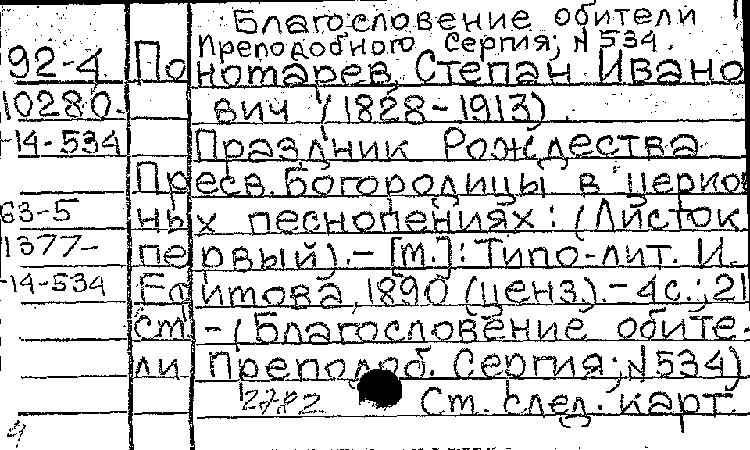 Благословение обители
Преподобного Сергия; N 534.
92-4 Понотарев Степан Ивано
10280. вич (1828-1913).
-14-534 Праздник Рождества
Пресв. Богородицы в церков
63-5 ных песнопениях: (Листок
1377- первый).- [М.]: Типо-лит. И.
-14-534 Ефимова, 1890 (ценз.).- 4с.; 21
см - (Благословение обите-
ли Преподоб. Сергия; N534)
2782 Ст. след. карт.